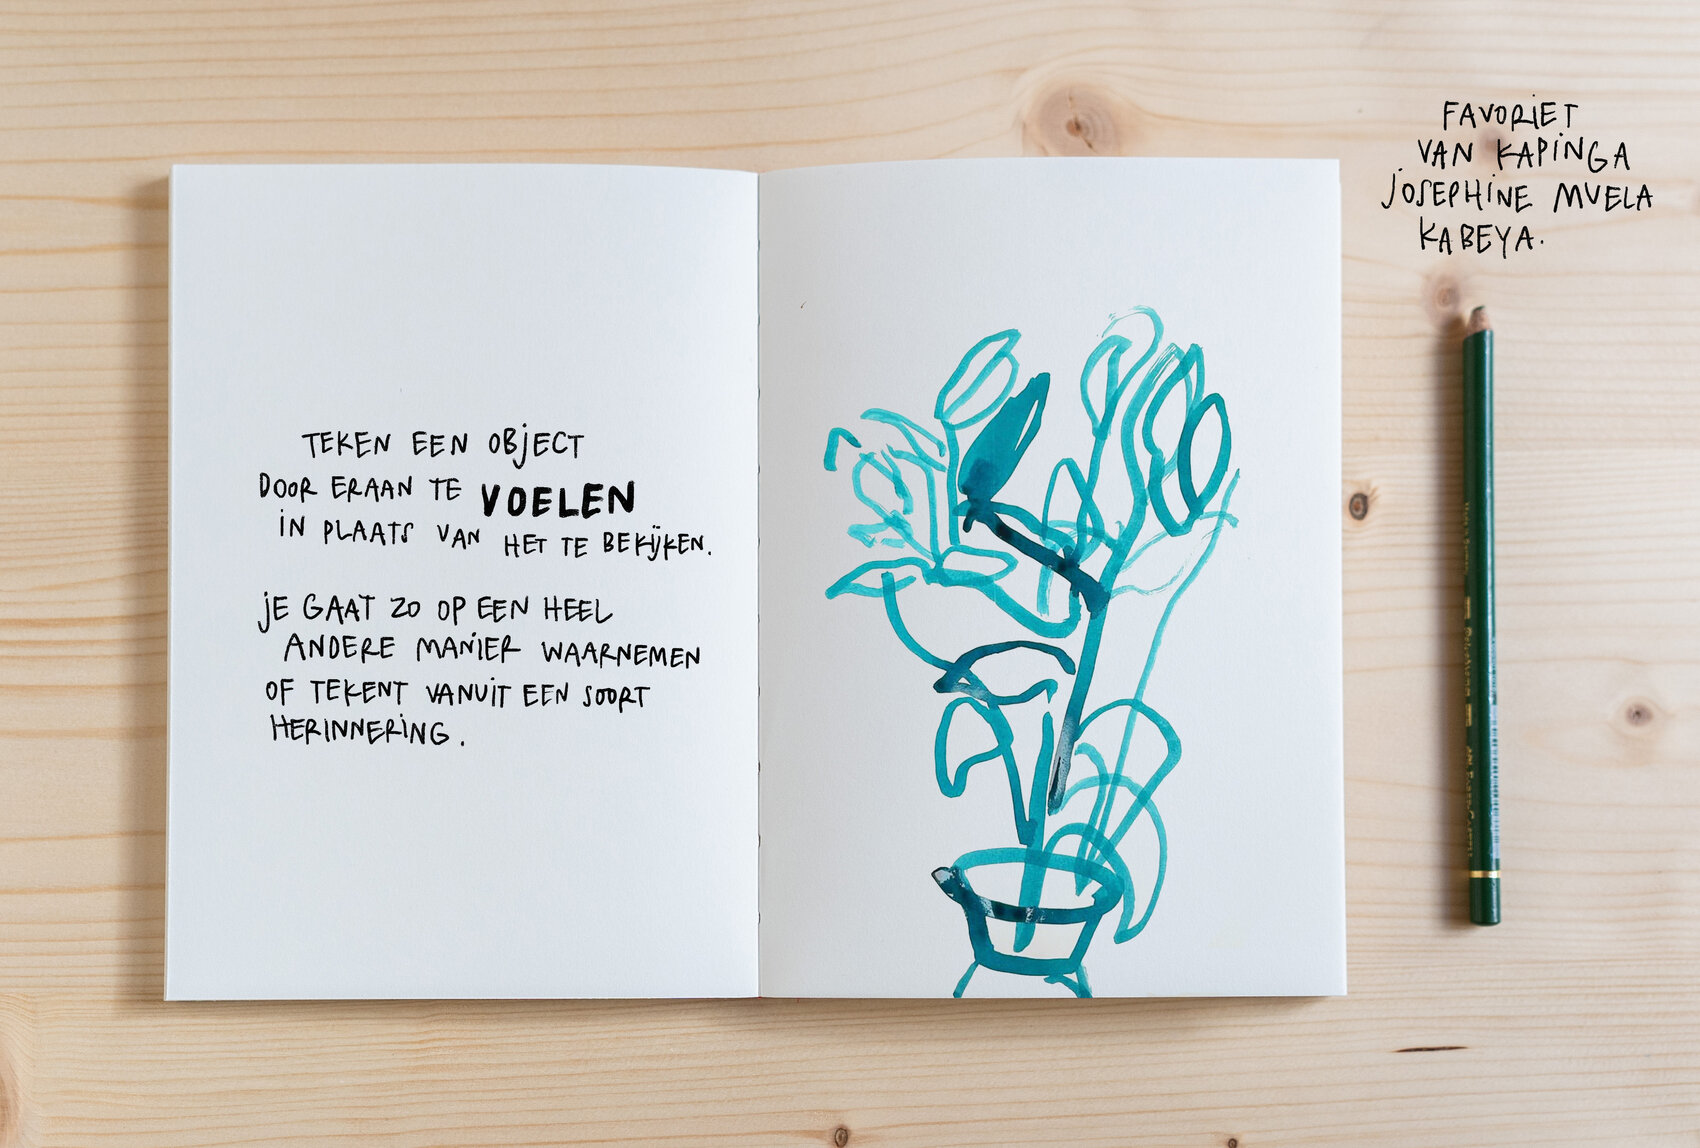 TEKEN EEN OBJECT
DOOR ERAAN TE VOELEN
IN PLAATS VAN HET TE BEKIJKEN.
JE GAAT ZO OP EEN HEEL
ANDERE MANIER WAARNEMEN
OF TEKENT VANUIT EEN SOORT
HERINNERING.
FAVORIET
VAN KAPINGA
JOSEPHINE MUELA
KABEYA.